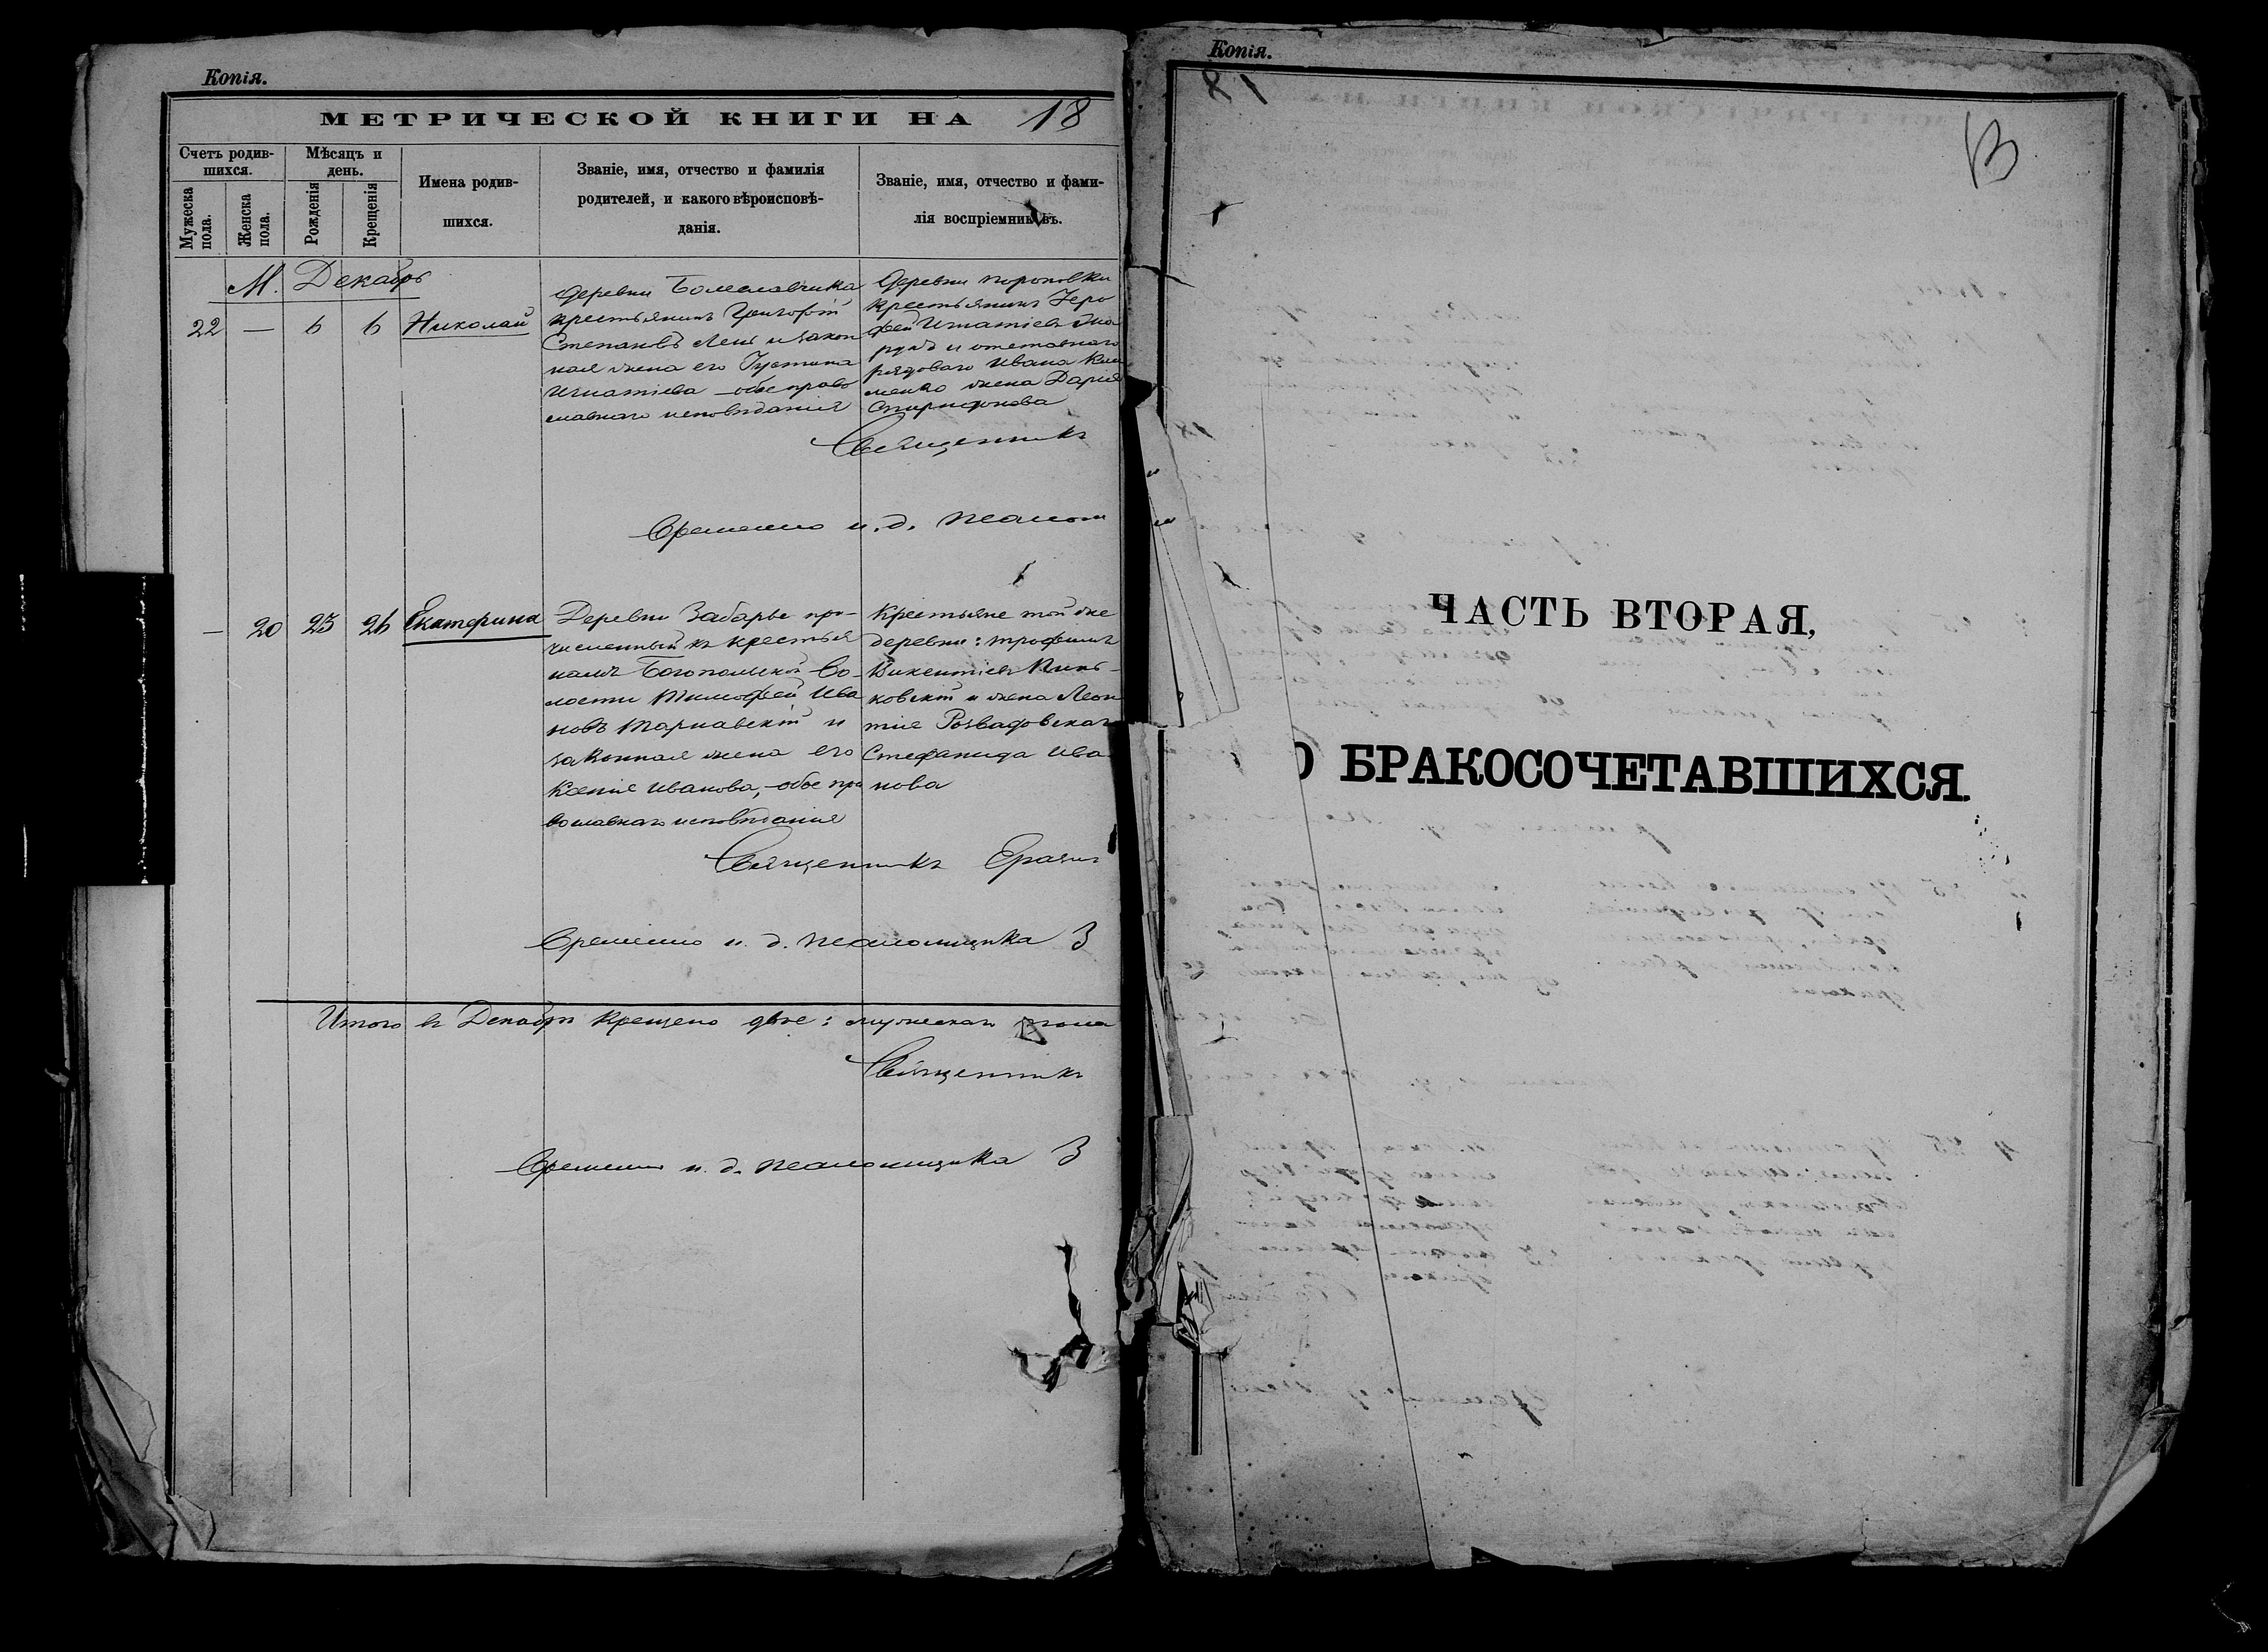 Копія.
МЕТРИЧЕСКОЙ КНИГИ НА 18
Счетъ родив-
шихся.
Мужеска
пола.
Женска
пола.
Мѣсяцъ и
день.
Рожденія
Крещенія
Имена родив-
шихся.
Званіе, имя, отчество и фамилія
родителей, и какого вѣроисповѣ-
данія.
Званіе, имя, отчество и фами-
лія воспріемниковъ.
М. Декабрь
22 — 6 6 Николай
Деревни Болеславчика
крестьянинъ Григорій
Степановъ и закон
ная жена его Іустина
Игнатіева – обое право
славнаго исповѣданія
Деревни
крестьянинъ Іеро
фей Игнатіевъ
и отставнаго
рядоваго Ивана Кли
менко жена Дарія
Спиридонова
Священникъ
Временно и. д. псалом
— 20 25 26 Екатерина
Деревни Забарье при-
численный къ крестья
намъ Богопольской Во-
лости Тимофей Ива
новъ Тарнавскій и
законная жена его
Ксенія Иванова, – обое пра
вославнаго исповѣданія
Крестьяне той же
деревни: Трофимъ
Викентіевъ
ковскій и жена Леон
тія Розвадовскаго
Стефанида Ива
нова
Священникъ
Временно и. д. псаломщика З
Итого въ Декабрѣ крещено двое: мужескаго пола
Священникъ
Временно и. д. псаломщика З
Копія.
ЧАСТЬ ВТОРАЯ,
О БРАКОСОЧЕТАВШИХСЯ.